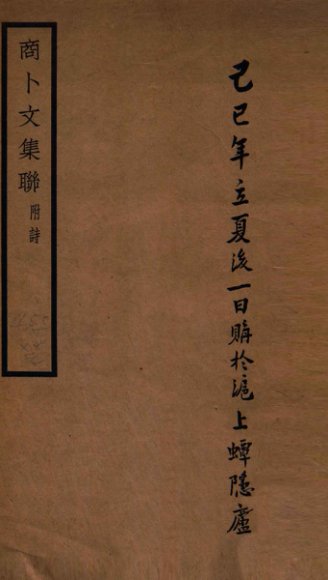 己巳年立夏後一日購於滬上蟫隱廬
商卜文集聯
附詩